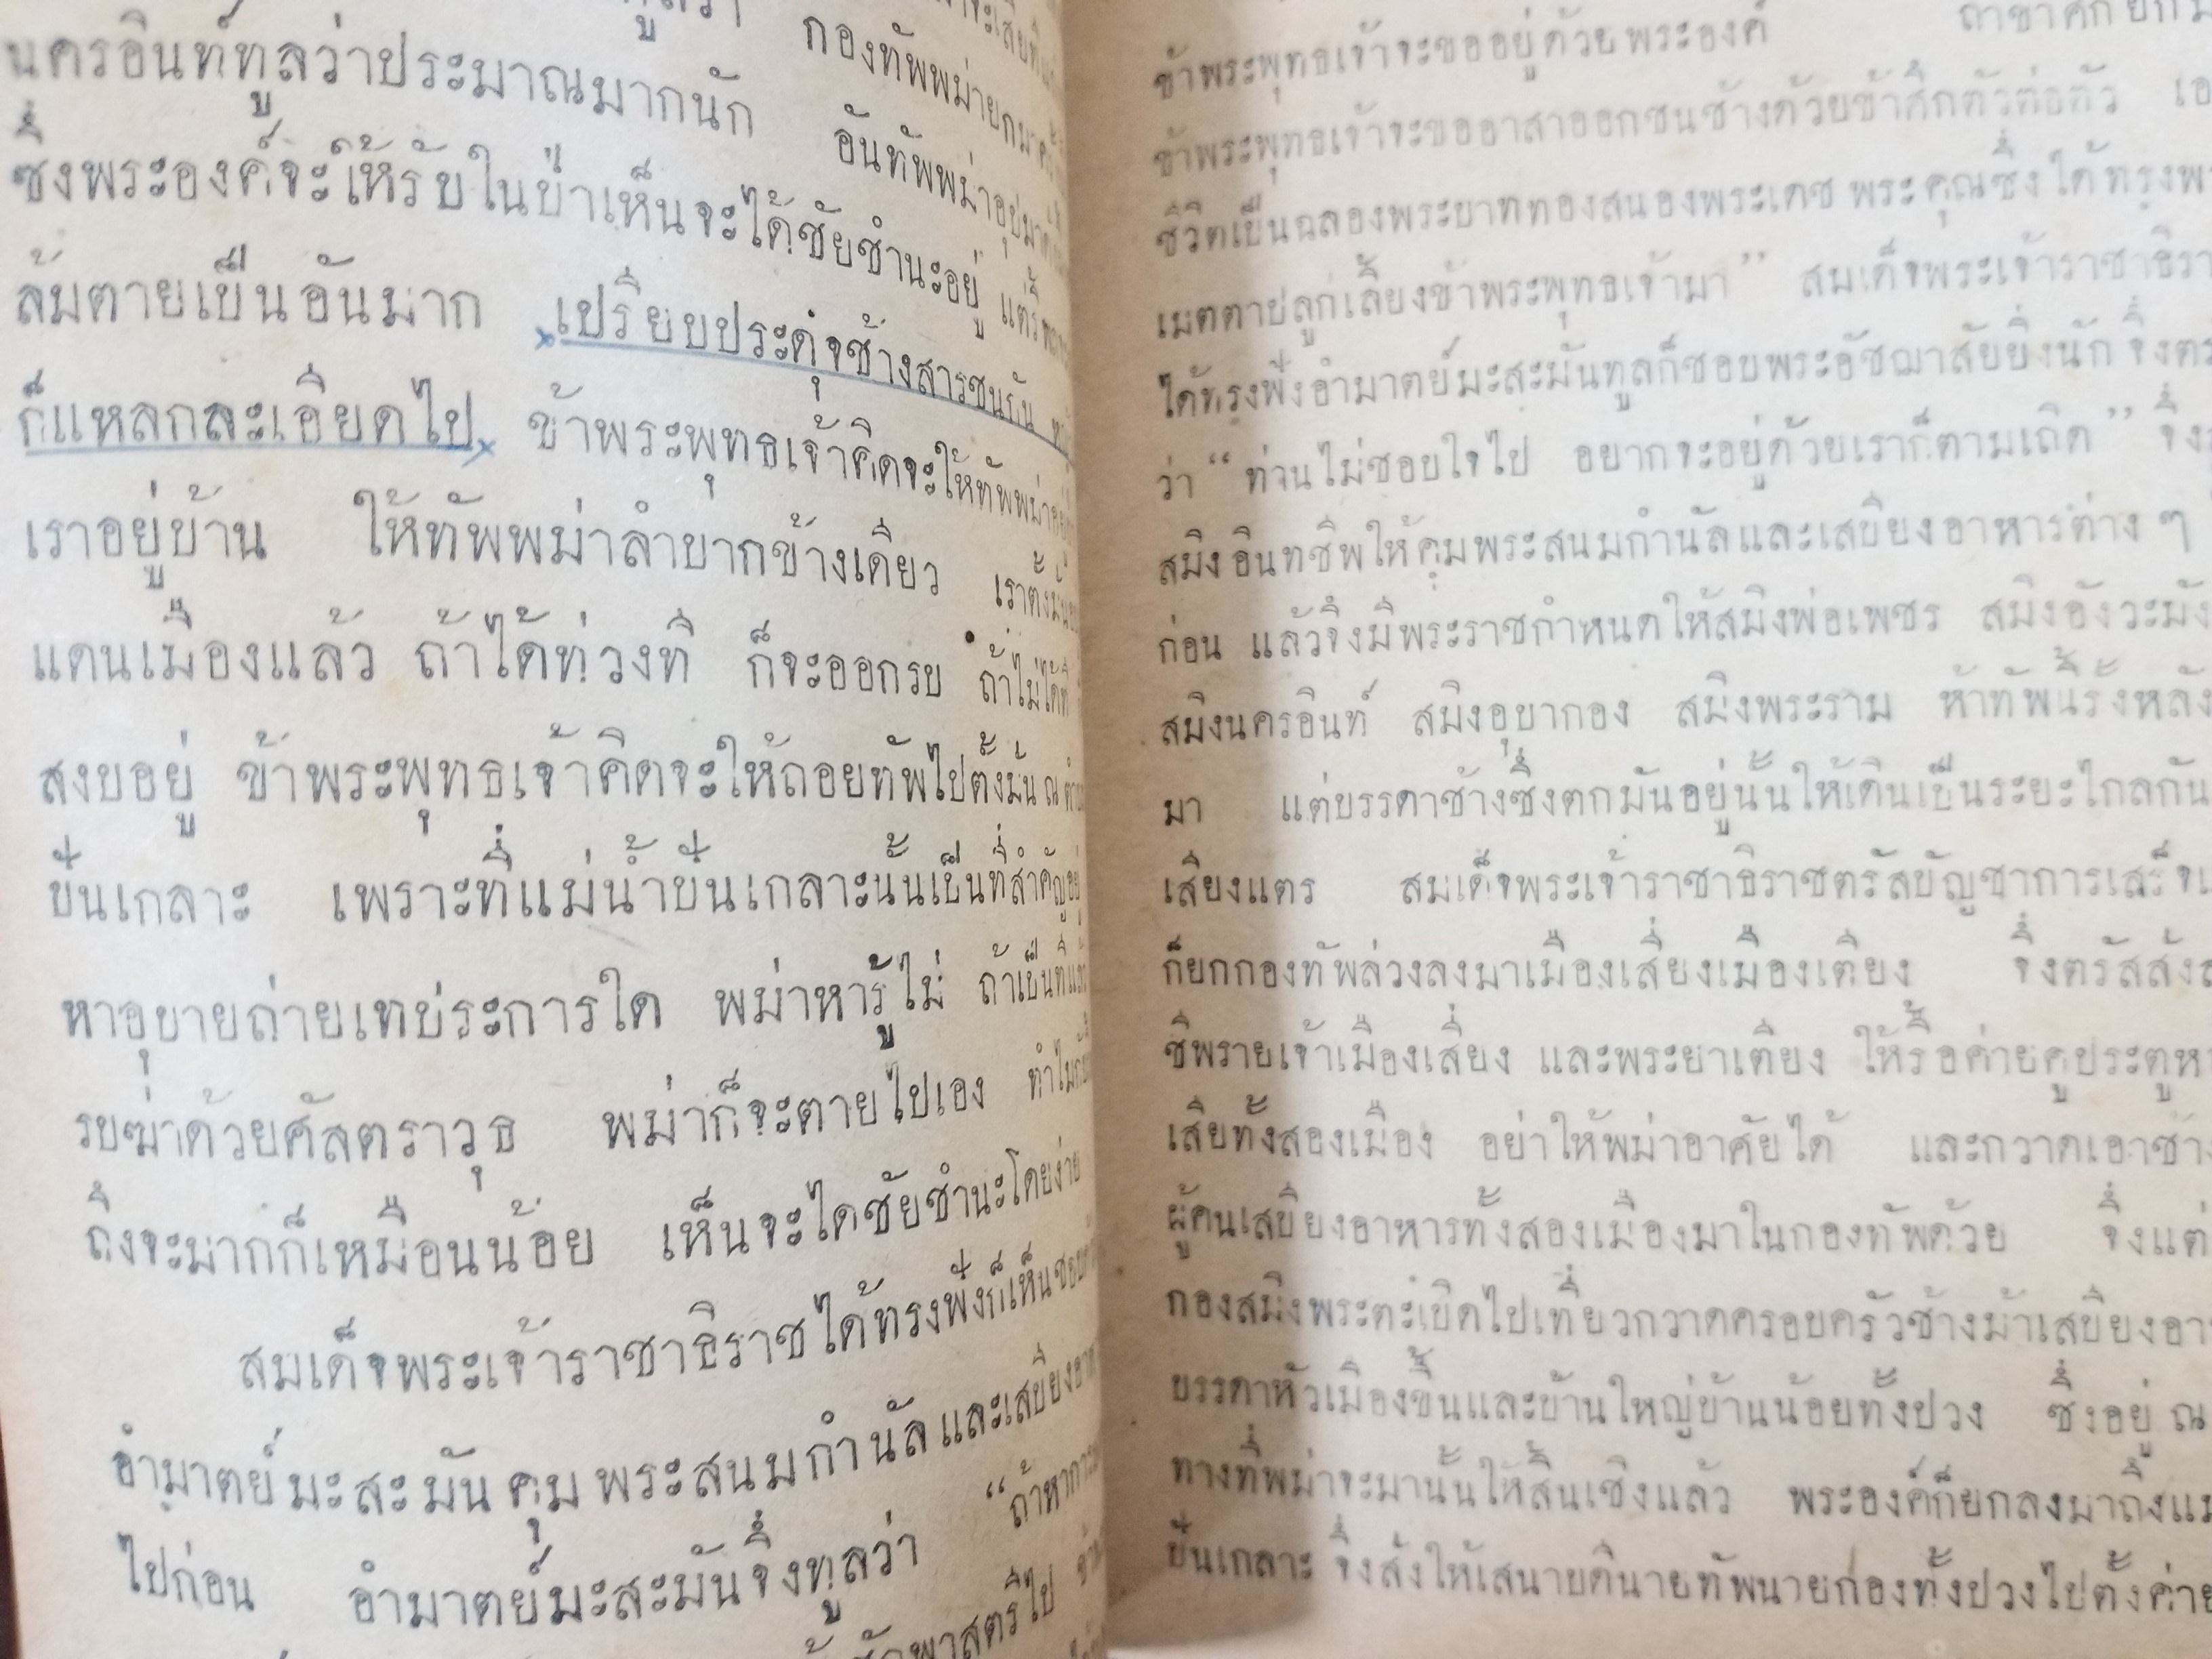 นครอินท์ทูลว่าประมาณมากนัก อันทัพพม่าอุปมา
ซึ่งพระองค์จะให้รับในป่าเห็นจะได้ชัยชำนะอยู่ แต่
ล้มตายเป็นอันมาก เปรียบประดุจช้างสารชนกัน
ก็แหลกละเอียดไป ข้าพระพุทธเจ้าคิดจะให้ทัพพม่า
เราอยู่บ้าน ให้ทัพพม่าลำบากข้างเดียว เราตั้งมั่น
แดนเมืองแล้ว ถ้าได้ท่วงที ก็จะออกรบ ถ้าไม่ได้ที
สงบอยู่ ข้าพระพุทธเจ้าคิดจะให้ถอยทัพไปตั้งมั่น ณ
ปั้นเกลาะ เพราะที่แม่น้ำปั้นเกลาะนั้นเป็นที่สำคัญอยู่
หาอุบายถ่ายเทประการใด พม่าหารู้ไม่ ถ้าเป็นที่
รบฆ่าด้วยศัสตราวุธ พม่าก็จะตายไปเอง
ถึงจะมากก็เหมือนน้อย เห็นจะได้ชัยชำนะโดยง่าย
สมเด็จพระเจ้าราชาธิราชได้ทรงฟังก็เห็นชอบ
อำมาตย์มะสะมันคุมพระสนมกำนัลและเสบียง
ไปก่อน อำมาตย์มะสะมันจึ่งทูลว่า “ถ้าหาก
ข้าพระพุทธเจ้าจะขออยู่ด้วยพระองค์
ข้าพระพุทธเจ้าจะขออาสาออกชนช้างด้วยข้าศึกตัวต่อตัว
ชีวิตเป็นฉลองพระบาททองสนองพระเดชพระคุณซึ่งได้ทรง
เมตตาปลูกเลี้ยงข้าพระพุทธเจ้ามา” สมเด็จพระเจ้าราชาธิรา
ได้ทรงฟังอำมาตย์มะสะมันทูลก็ชอบพระอัชฌาสัยยิ่งนัก จึ่งตร
ว่า “ท่านไม่ชอบใจไป อยากจะอยู่ด้วยเราก็ตามเถิด” จึ่ง
สมิงอินทชีพให้คุมพระสนมกำนัลและเสบียงอาหารต่าง ๆ
ก่อน แล้วจึ่งมีพระราชกำหนดให้สมิงพ่อเพชร สมิงอังวะมัง
สมิงนครอินท์ สมิงอุบากอง สมิงพระราม ห้าทัพนี้รั้งหลัง
มา แต่บรรดาช้างซึ่งตกมันอยู่นั้นให้เดินเป็นระยะไกลกัน
เสียงแตร สมเด็จพระเจ้าราชาธิราชตรัสบัญชาการเสร็จ
ก็ยกกองทัพล่วงลงมาเมืองเสี่ยงเมืองเตียง จึ่งตรัสสั่ง
ชีพรายเจ้าเมืองเสี่ยง และพระยาเตียง ให้รื้อค่ายคูประตู
เสียทั้งสองเมือง อย่าให้พม่าอาศัยได้ และกวาดเอาช้าง
ผู้คนเสบียงอาหารทั้งสองเมืองมาในกองทัพด้วย จึ่งแต่
กองสมิงพระตะเบิดไปเที่ยวกวาดครอบครัวช้างม้าเสบียงอา
บรรดาหัวเมืองขึ้นและบ้านใหญ่บ้านน้อยทั้งปวง ซึ่งอยู่ ณ
ทางที่พม่าจะมานั้นให้สิ้นเชิงแล้ว พระองค์ก็ยกลงมาถึงแม
ปั้นเกลาะ จึ่งสั่งให้เสนาบดีนายทัพนายกองทั้งปวงไปตั้งค่าย